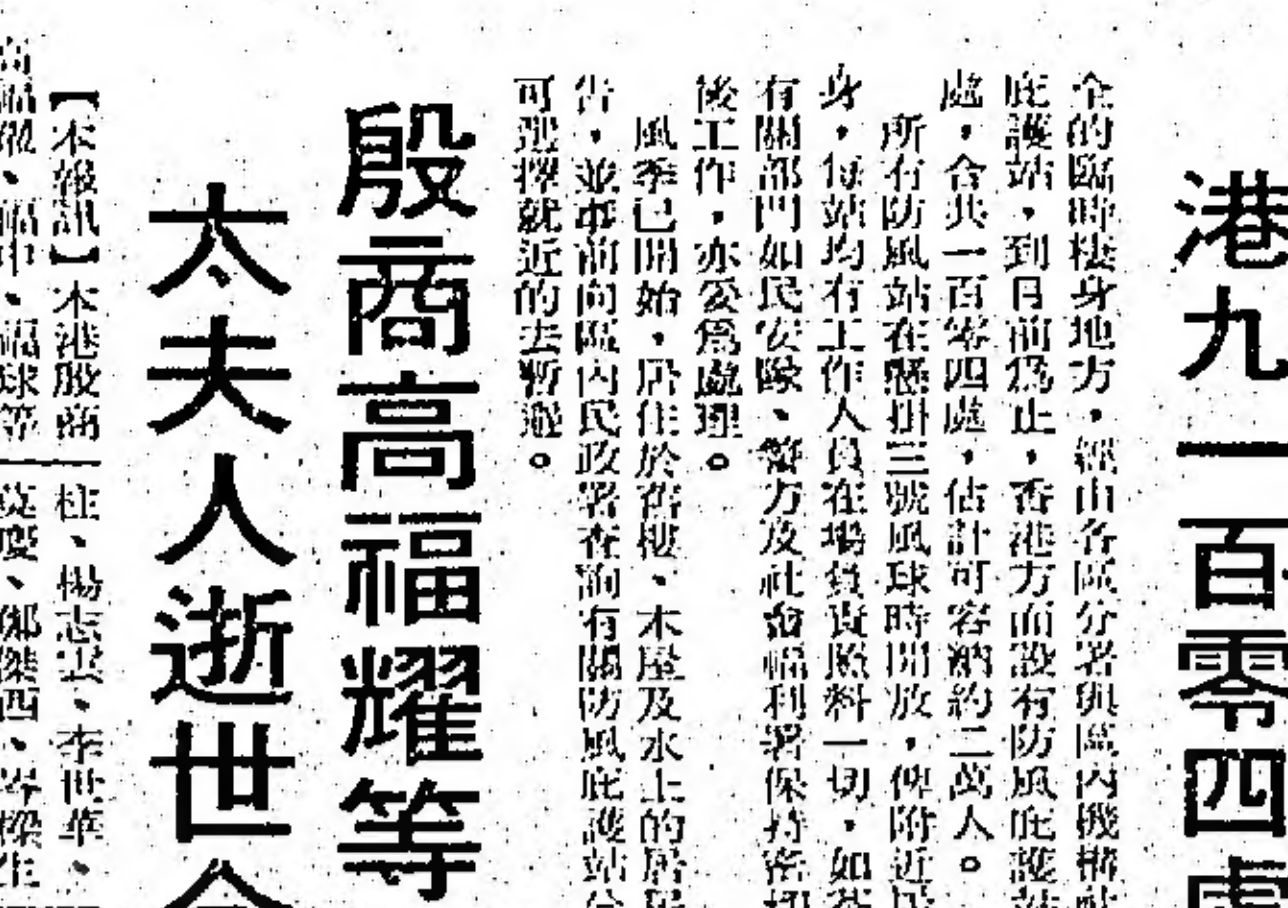 港九一百零四處
全的臨時棲身地方，經由各區分署與區內機構
庇護站，到目前為止，香港方面設有防風庇護站
處，合共一百零四處，估計可容納約二萬人。
所有防風站在懸掛三號風球時開放，俾附近居
身，每站均有工作人員在場負責照料一切，如
有關部門如民安隊、警方及社會福利署保持密切
後工作，亦妥爲處理。
風季已開始，居住於舊樓、木屋及水上的居民
告，並事前向區內民政署查詢有關防風庇護站
可選擇就近的去暫避。
殷商高福耀等
太夫人逝世
【本報訊】本港殷商
柱、楊志雲、李世華、
高福權、福申、福球等
慶、鄧傑西、岑樑生